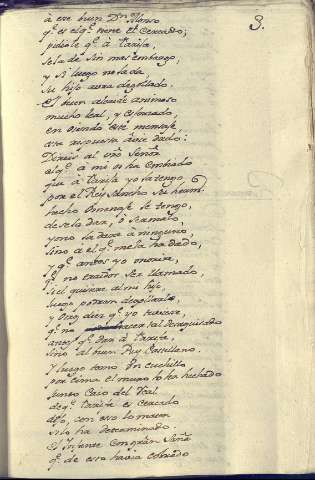 3.
à ese buen Dn. Alonso
qe. es el qe. tiene el Cercado;
pidiole qe. à Tarifa,
se la dè sin mas embargo,
y si luego no la da,
su hijo sera degollado.
El buen alcaide animoso
mucho leal, y esforzado,
en oiendo este mensaje,
esta respuesta à dado:
Direis al vro Señor
el qe. à mi os ha embiado
qe. à Tarifa yo la tengo,
por el Rey Sancho su herm.
hecho omenaje le tengo,
de se la dar, ò
yo no la dare à ninguno,
sino à el qe. me la ha dado,
qe. antes yo moriria,
qe. no traidor ser llamado,
si el quiere al mi hijo,
luego podran degollarlo,
y otros diez qe. yo tuviese,
qe. no hacer tal
antes qe. dar à Tarifa,
sino al buen Rey Castellano.
Y luego tomo un cuchillo,
por cima el muro lo ha hechado
junto caio del Real
de qe. Tarifa es cercado
dijo, con eso lo maten
si lo ha determinado.
El Infante con gran saña
qe. de esto havia cobrado